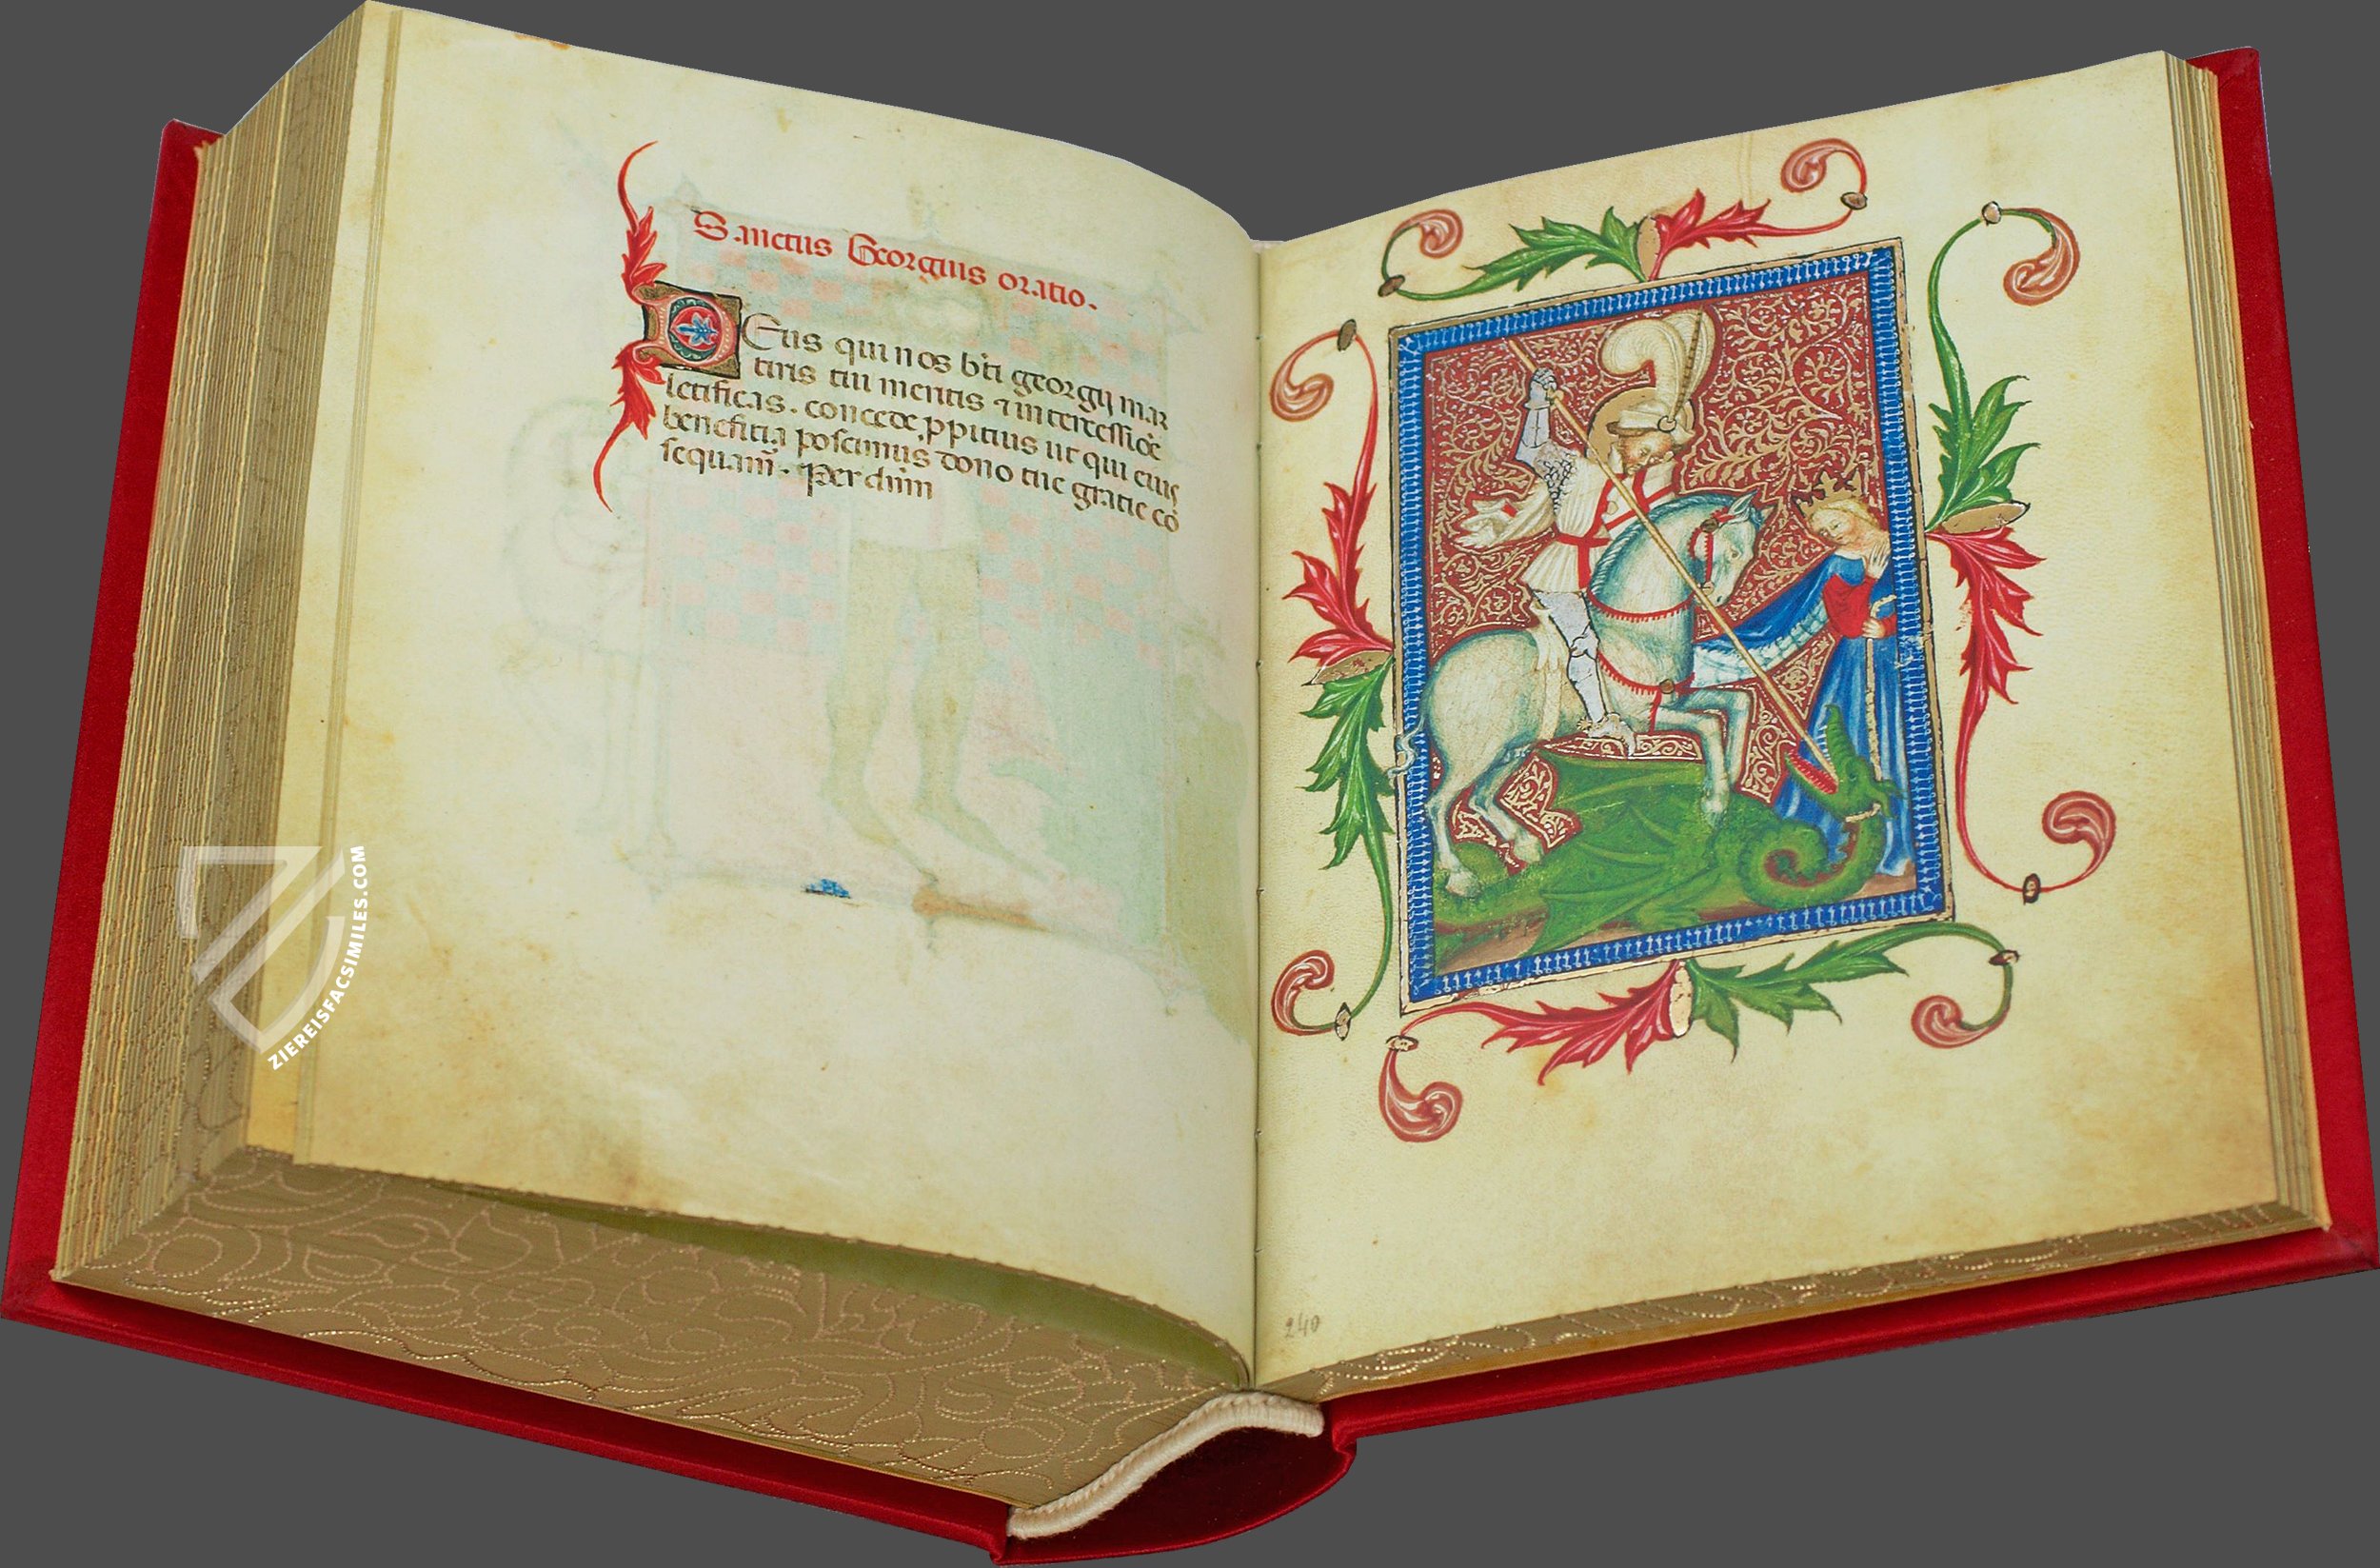 Sanctus Georgius oratio.
DEus qui nos bti georgij mar
tiris tui meritis ⁊ intercessiōe
letificas. concede ꝓpitius ut qui eius
beneficia poscimus dono tue gratie cō
sequam̄. Per dūm
240
ZIEREISFACSIMILES.COM